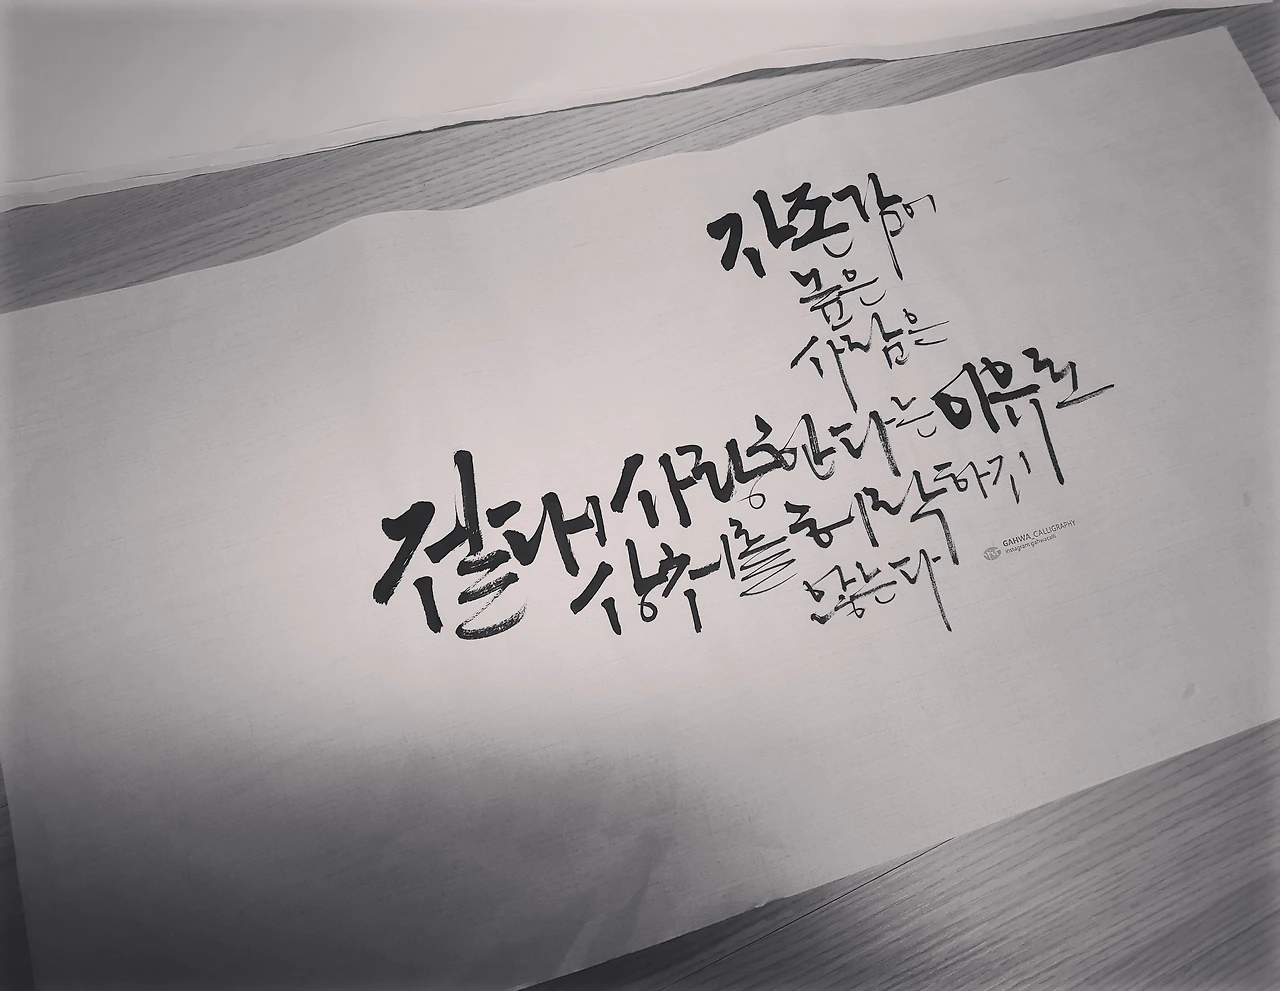 자존감이
높은
사람은
절대 사랑한다는 이유로
상처를 허락하지
않는다
GAHWA_CALLIGRAPHY
instagram:gahwacalli